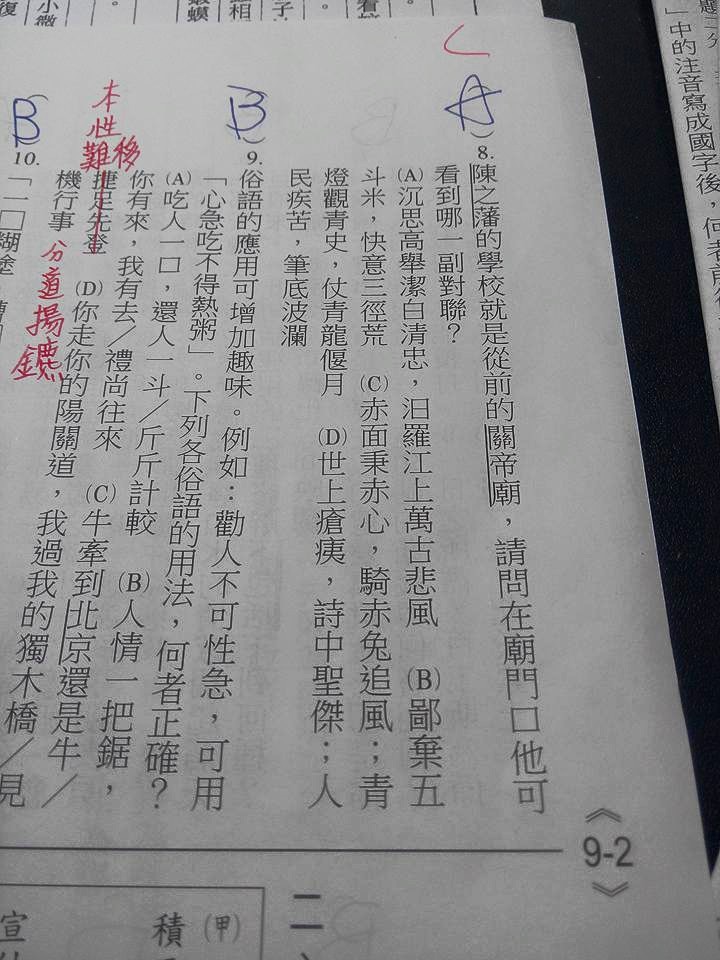 C
(A)8.陳之藩的學校就是從前的關帝廟，請問在廟門口他可
看到哪一副對聯？
(A)沉思高舉潔白清忠，汨羅江上萬古悲風 (B)鄙棄五
斗米，快意三徑荒 (C)赤面秉赤心，騎赤兔追風；青
燈觀青史，仗青龍偃月 (D)世上瘡痍，詩中聖傑；人
民疾苦，筆底波瀾
(B)9.俗語的應用可增加趣味。例如：勸人不可性急，可用
「心急吃不得熱粥」。下列各俗語的用法，何者正確？
(A)吃人一口，還人一斗／斤斤計較 (B)人情一把鋸，
你有來，我有去／禮尚往來 (C)牛牽到北京還是牛／
本性難移
捷足先登 (D)你走你的陽關道，我過我的獨木橋／見
機行事 分道揚鑣
(B)10.「一口糊塗
《9-2》
二、
(甲)
積
宣